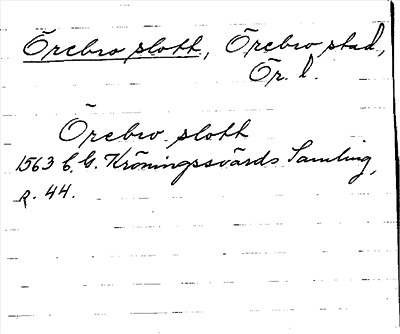 Örebro slott, Örebro stad,
Ör. l.
Örebro slott
1563 C.G. Kröningssvärds Samling,
R. 44.